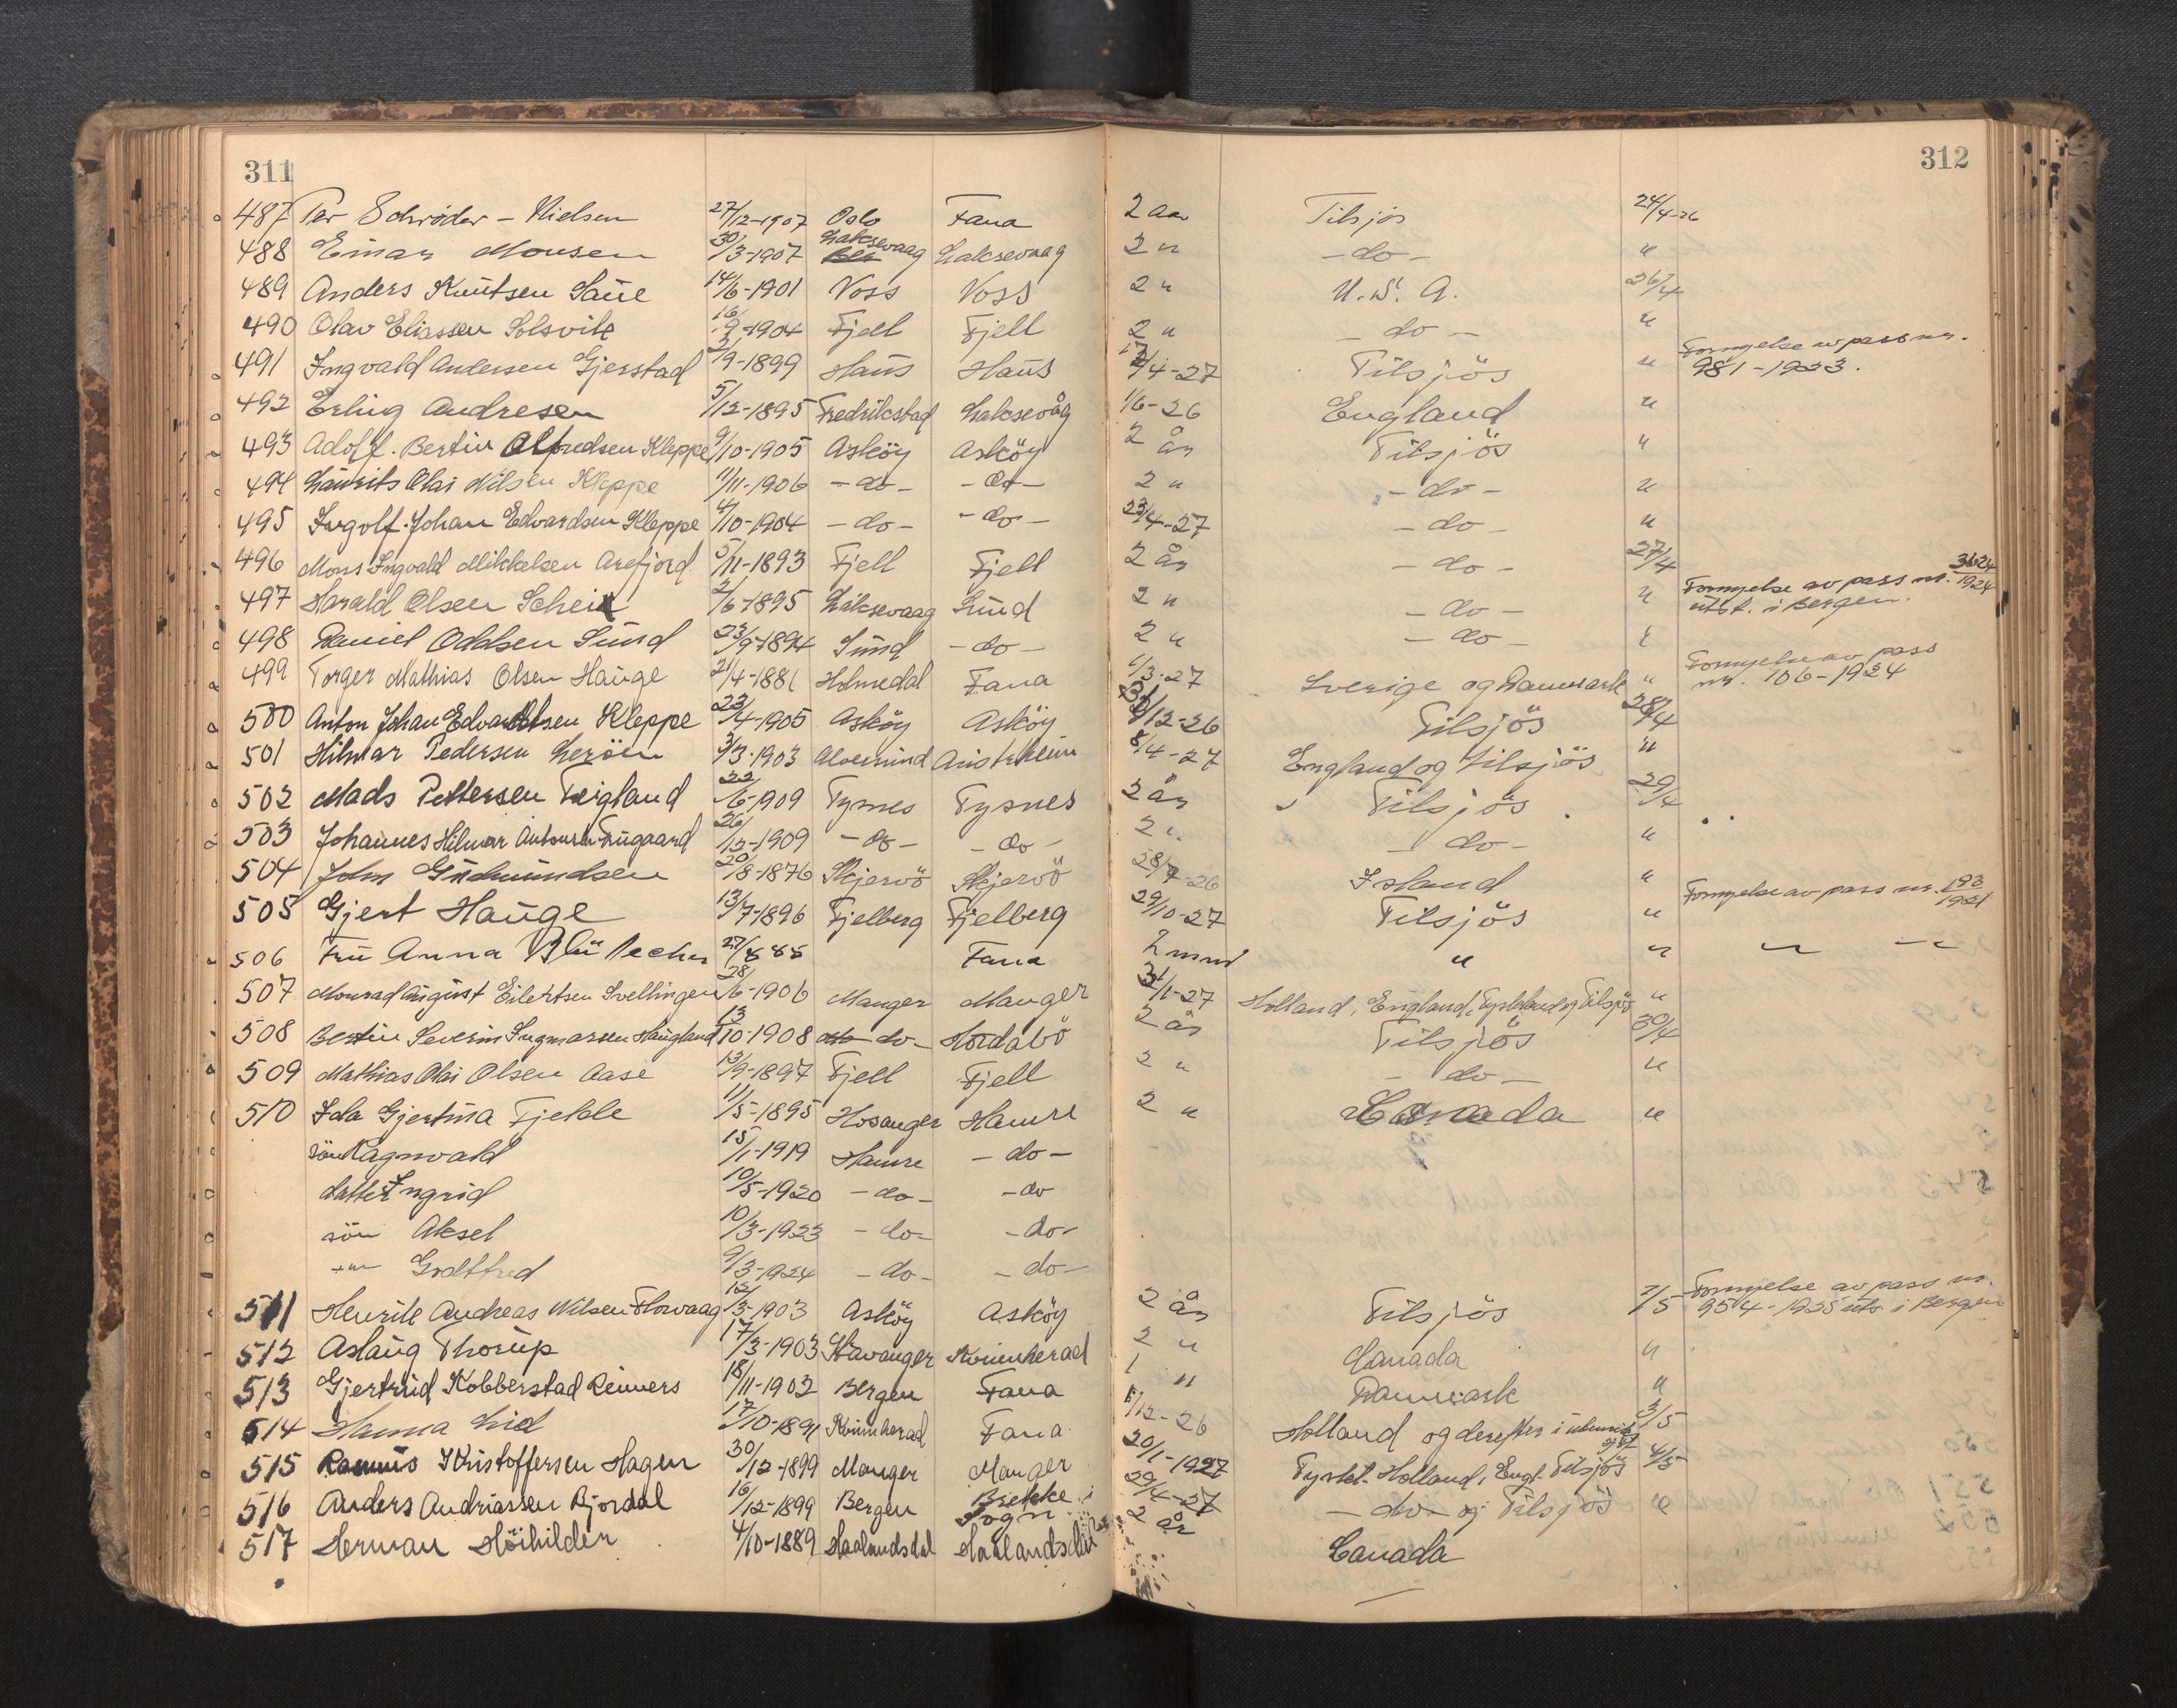 311
312
487 Per Schröder - Nielsen 27/12-1907 Oslo Fana 2 aar Tilsjös 24/4-26
488 Einar Monsen 30/3-1907 Laksevaag Laksevaag 2 " - do - "
489 Anders Knutsen Saue 14/6-1901 Voss Voss 2 " U.S.A. 26/4
490 Olav Eliassen Solsvik 16/9-1904 Fjell Fjell 2 " - do - "
491 Ingvald Andersen Gjerstad /9-1899 Haus Haus /4-27 Tilsjös " Fornyelse av pass nr. 981-1923.
492 Erling Andresen 5/12-1895 Fredrikstad Laksevåg 1/6-26 England "
493 Adolf. Bertin Alfredsen Kleppe 9/10-1905 Asköy Asköy 2 år Tilsjös "
494 Laurits Olai Nilsen Kleppe 11/11-1906 - do - - do - 2 " - do - "
495 Ingolf Johan Edvardsen Kleppe 4/10-1904 - do - - do - 23/4-27 - do - "
496 Mons Ingvald Mikkelsen Arefjord 5/11-1893 Fjell Fjell 2 år - do - 27/4
497 Harald Olsen Schei 2/6-1895 Laksevaag Sund 2 " - do - " Fornyelse av pass nr. 3624/1924 utst. i Bergen.
498 Daniel Oddsen Sund 23/9-1894 Sund - do - 2 " - do - "
499 Torger Mathias Olsen Hauge 21/4-1881 Holmedal Fana 1/3-27 Sverige og Danmark " Fornyelse av pass nr. 106-1924
500 Anton Johan Edvardsen Kleppe 23/4-1905 Asköy Asköy 31/12-26 Tilsjös 28/4
501 Hilmar Pedersen Leröen 3/3-1903 Alversund Austrheim 8/4-27 England og tilsjös "
502 Mads Pettersen Freigland 22/6-1909 Tysnes Tysnes 2 år Tilsjös 29/4
503 Johannes Hilmar Antonsen 26/12-1909 - do - - do - 2 " - do - "
504 John Gudmundsen 20/8-1876 Skjervö Skjervö 28/7-26 Island "
505 Gjert Hauge 13/7-1896 Fjelberg Fjelberg 29/10-27 Tilsjös " Fornyelse av pass nr. 193/1921
506 Fru Anna Blü 27/8 85 Fana 2 mnd " " " "
507 Monrad August Eilertsen Svellingen 28/6-1906 Manger Manger 31/1-27 Holland, England, Tyskland og Tilsjös "
508 Bertin Severin Ingmarsen Haugland 13/10-1908 - do - Hordabö 2 år Tilsjös 30/4
509 Mathias Olai Olsen Aase 13/9-1897 Fjell Fjell 2 " - do - "
510 Ida Gjertina Fjelde 11/5-1895 Hosanger Hamre 2 " Canada "
sön Ragnvald 15/1-1919 Hamre - do -
datter Ingrid 10/5-1920 - do - - do
sön Aksel 10/3-1923 - do - - do -
-"- Godtfred 9/3-1924 - do - - do -
511 Henrik Andreas Nilsen Florvaag 12/3-1903 Asköy Asköy 2 år Tilsjös 1/5 Fornyelse av pass nr. 954-1925 uts. i Bergen
512 Aslaug Thorup 17/3-1903 Stavanger Kvinnherad 2 " Canada "
513 Gjertrud Kobberstad Reimers 18/11-1902 Bergen Fana 1 " Danmark "
514 Hanna Lid 17/10-1891 Kvinnherad Fana /12-26 Holland og derefter i utenriks 3/5
515 Rasmus Kristoffersen Hagen 30/12-1899 Manger Manger 20/1-1927 Tyskl. Holland, Engl. Tilsjös 4/5
516 Anders Andriassen Bjordal 16/12-1899 Bergen Brekke i Sogn 29/4-27 - do - og Tilsjös "
517 Herman Höihilder 4/10-1889 Haalandsdal Haalandsdal 2 år Canada